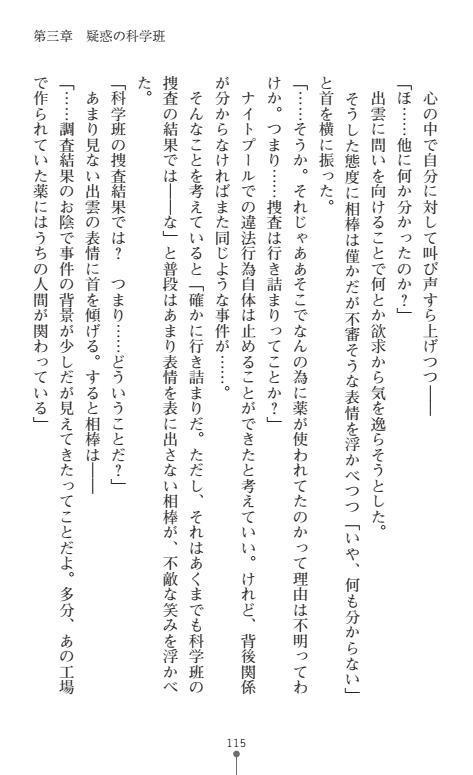 第三章　疑惑の科学班
　心の中で自分に対して叫び声すら上げつつ――
「ほ……他に何か分かったのか？」
　出雲に問いを向けることで何とか欲求から気を逸らそうとした。
　そうした態度に相棒は僅かだが不審そうな表情を浮かべつつ「いや、何も分からない」
と首を横に振った。
「……そうか。それじゃああそこでなんの為に薬が使われてたのかって理由は不明ってわ
けか。つまり……捜査は行き詰まりってことか？」
　ナイトプールでの違法行為自体は止めることができたと考えていい。けれど、背後関係
が分からなければまた同じような事件が……。
　そんなことを考えていると「確かに行き詰まりだ。ただし、それはあくまでも科学班の
捜査の結果では――な」と普段はあまり表情を表に出さない相棒が、不敵な笑みを浮かべ
た。
「科学班の捜査結果では？　つまり……どういうことだ？」
　あまり見ない出雲の表情に首を傾げる。すると相棒は――
「……調査結果のお陰で事件の背景が少しだが見えてきたってことだよ。多分、あの工場
で作られていた薬にはうちの人間が関わっている」
115